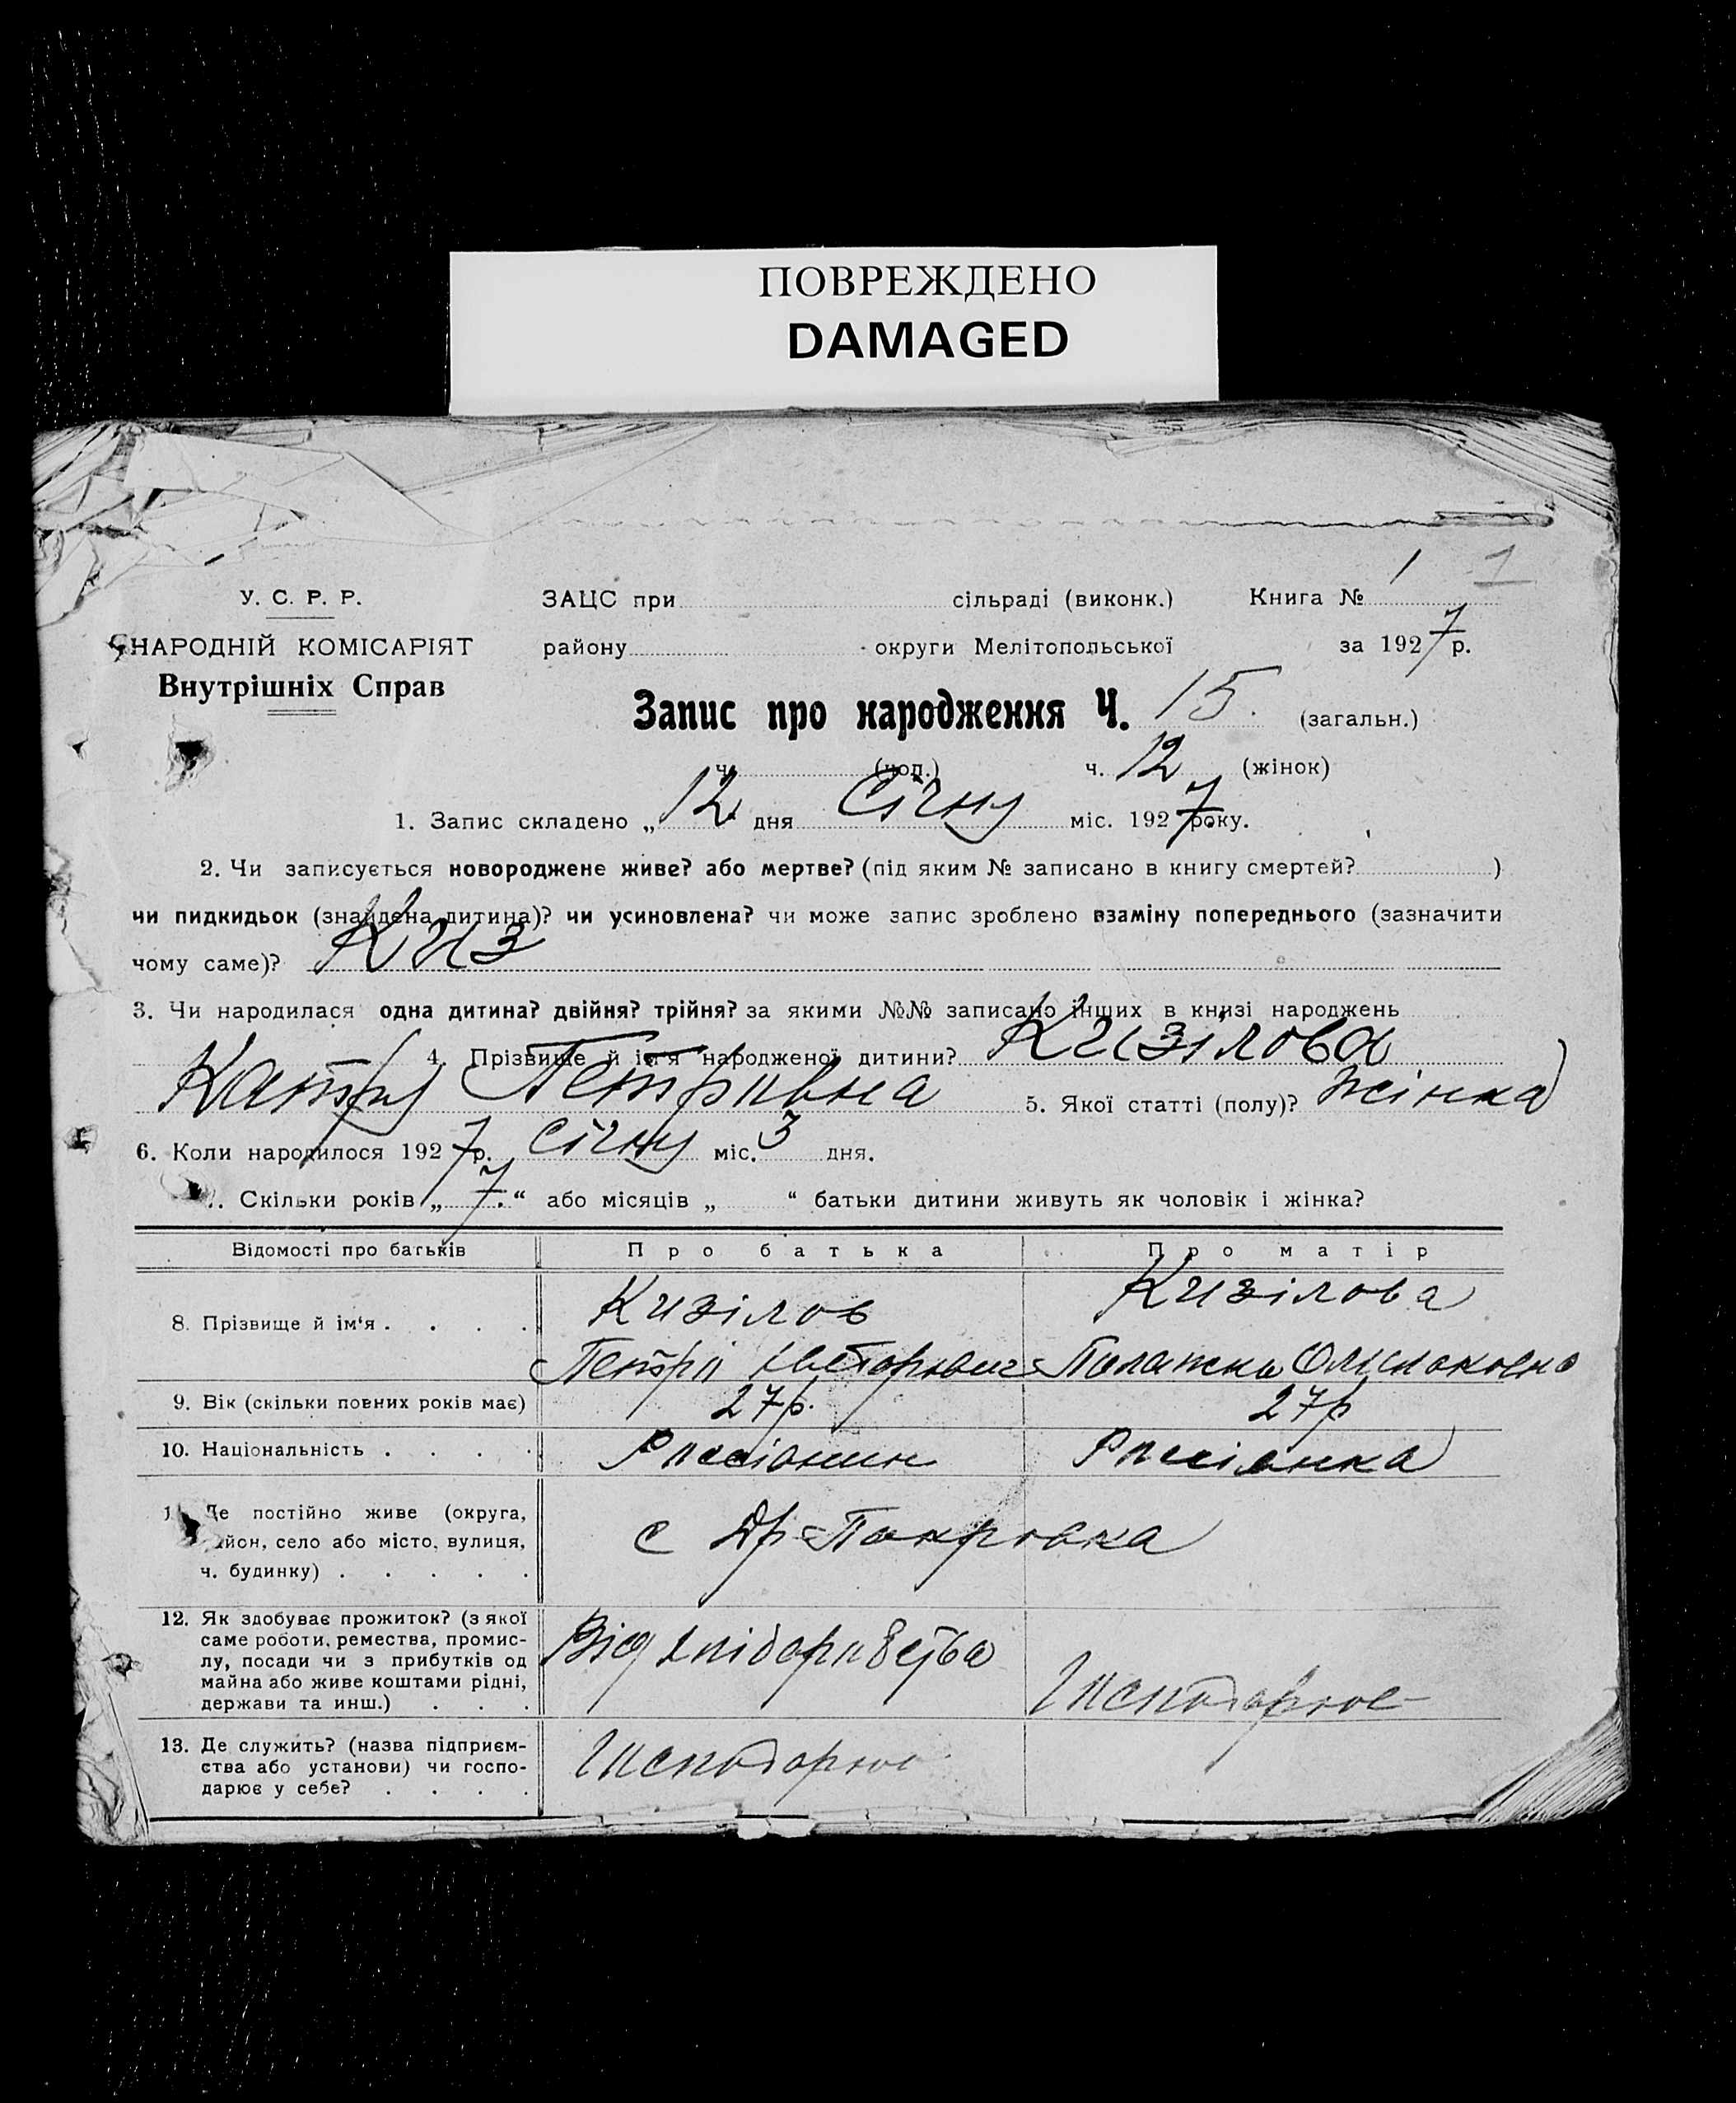 ПОВРЕЖДЕНО
DAMAGED
1 1
У. С. Р. Р. ЗАЦС при сільраді (виконк.) Книга №
НАРОДНІЙ КОМІСАРІЯТ району округи Мелітопольської за 1927 р.
Внутрішніх Справ
Запис про народження Ч. 15. (загальн.)
ч. (чол.) ч. 12 (жінок)
1. Запис складено „ 12 дня Січня міс. 1927 року.
2. Чи записується новороджене живе? або мертве? (під яким № записано в книгу смертей? )
чи пидкидьок (знайдена дитина)? чи усиновлена? чи може запис зроблено взаміну попереднього (зазначити
чому саме)? Киз
3. Чи народилася одна дитина? двійня? трійня? за якими №№ записано інших в книзі народжень
4. Прізвище й ім'я народженої дитини? Кизілова
Катря Петрівна 5. Якої статті (полу)? жінка
6. Коли народилося 1927 р. Січня міс. 3 дня.
Скільки років „ 7. “ або місяців „ “ батьки дитини живуть як чоловік і жінка?
Відомості про батьків Про батька Про матір
8. Прізвище й ім'я . . . . Кизілов Кизілова
Петро Палажка
9. Вік (скільки повних років має) 27 р. 27 р
10. Національність . . . . Россіянин Россіянка
Де постійно живе (округа,
район, село або місто, вулиця, с Др-Покровка
ч. будинку) . . . . .
12. Як здобуває прожиток? (з якої
саме роботи, ремества, промис-
лу, посади чи з прибутків од Від хліборобства
майна або живе коштами рідні, Господарює
держави та инш.) . . .
13. Де служить? (назва підприєм-
ства або установи) чи госпо- Господарює
дарює у себе? . . . .